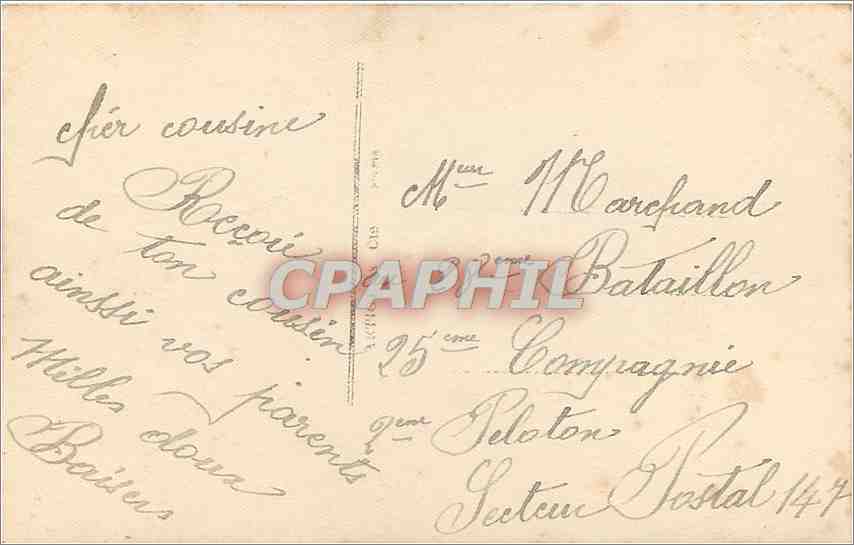 chér cousine
Reçoié
de ton cousin
ainssi vos parents
Milles doux
Baisers
Meur Marchand
eme Bataillon
25eme Compagnie
2eme Peloton
Secteur Postal 147
CPAPHIL